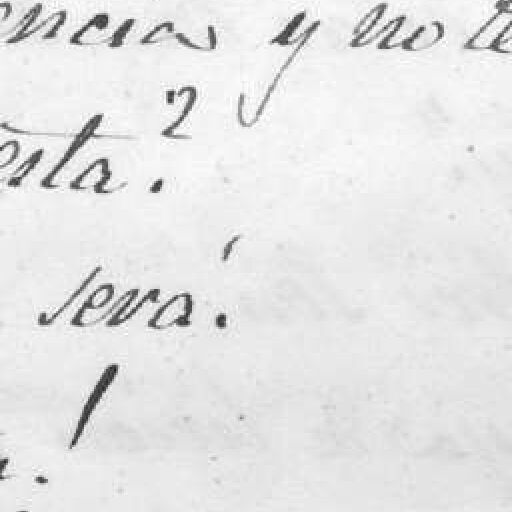 encias y no te
esta?
será.
!
.